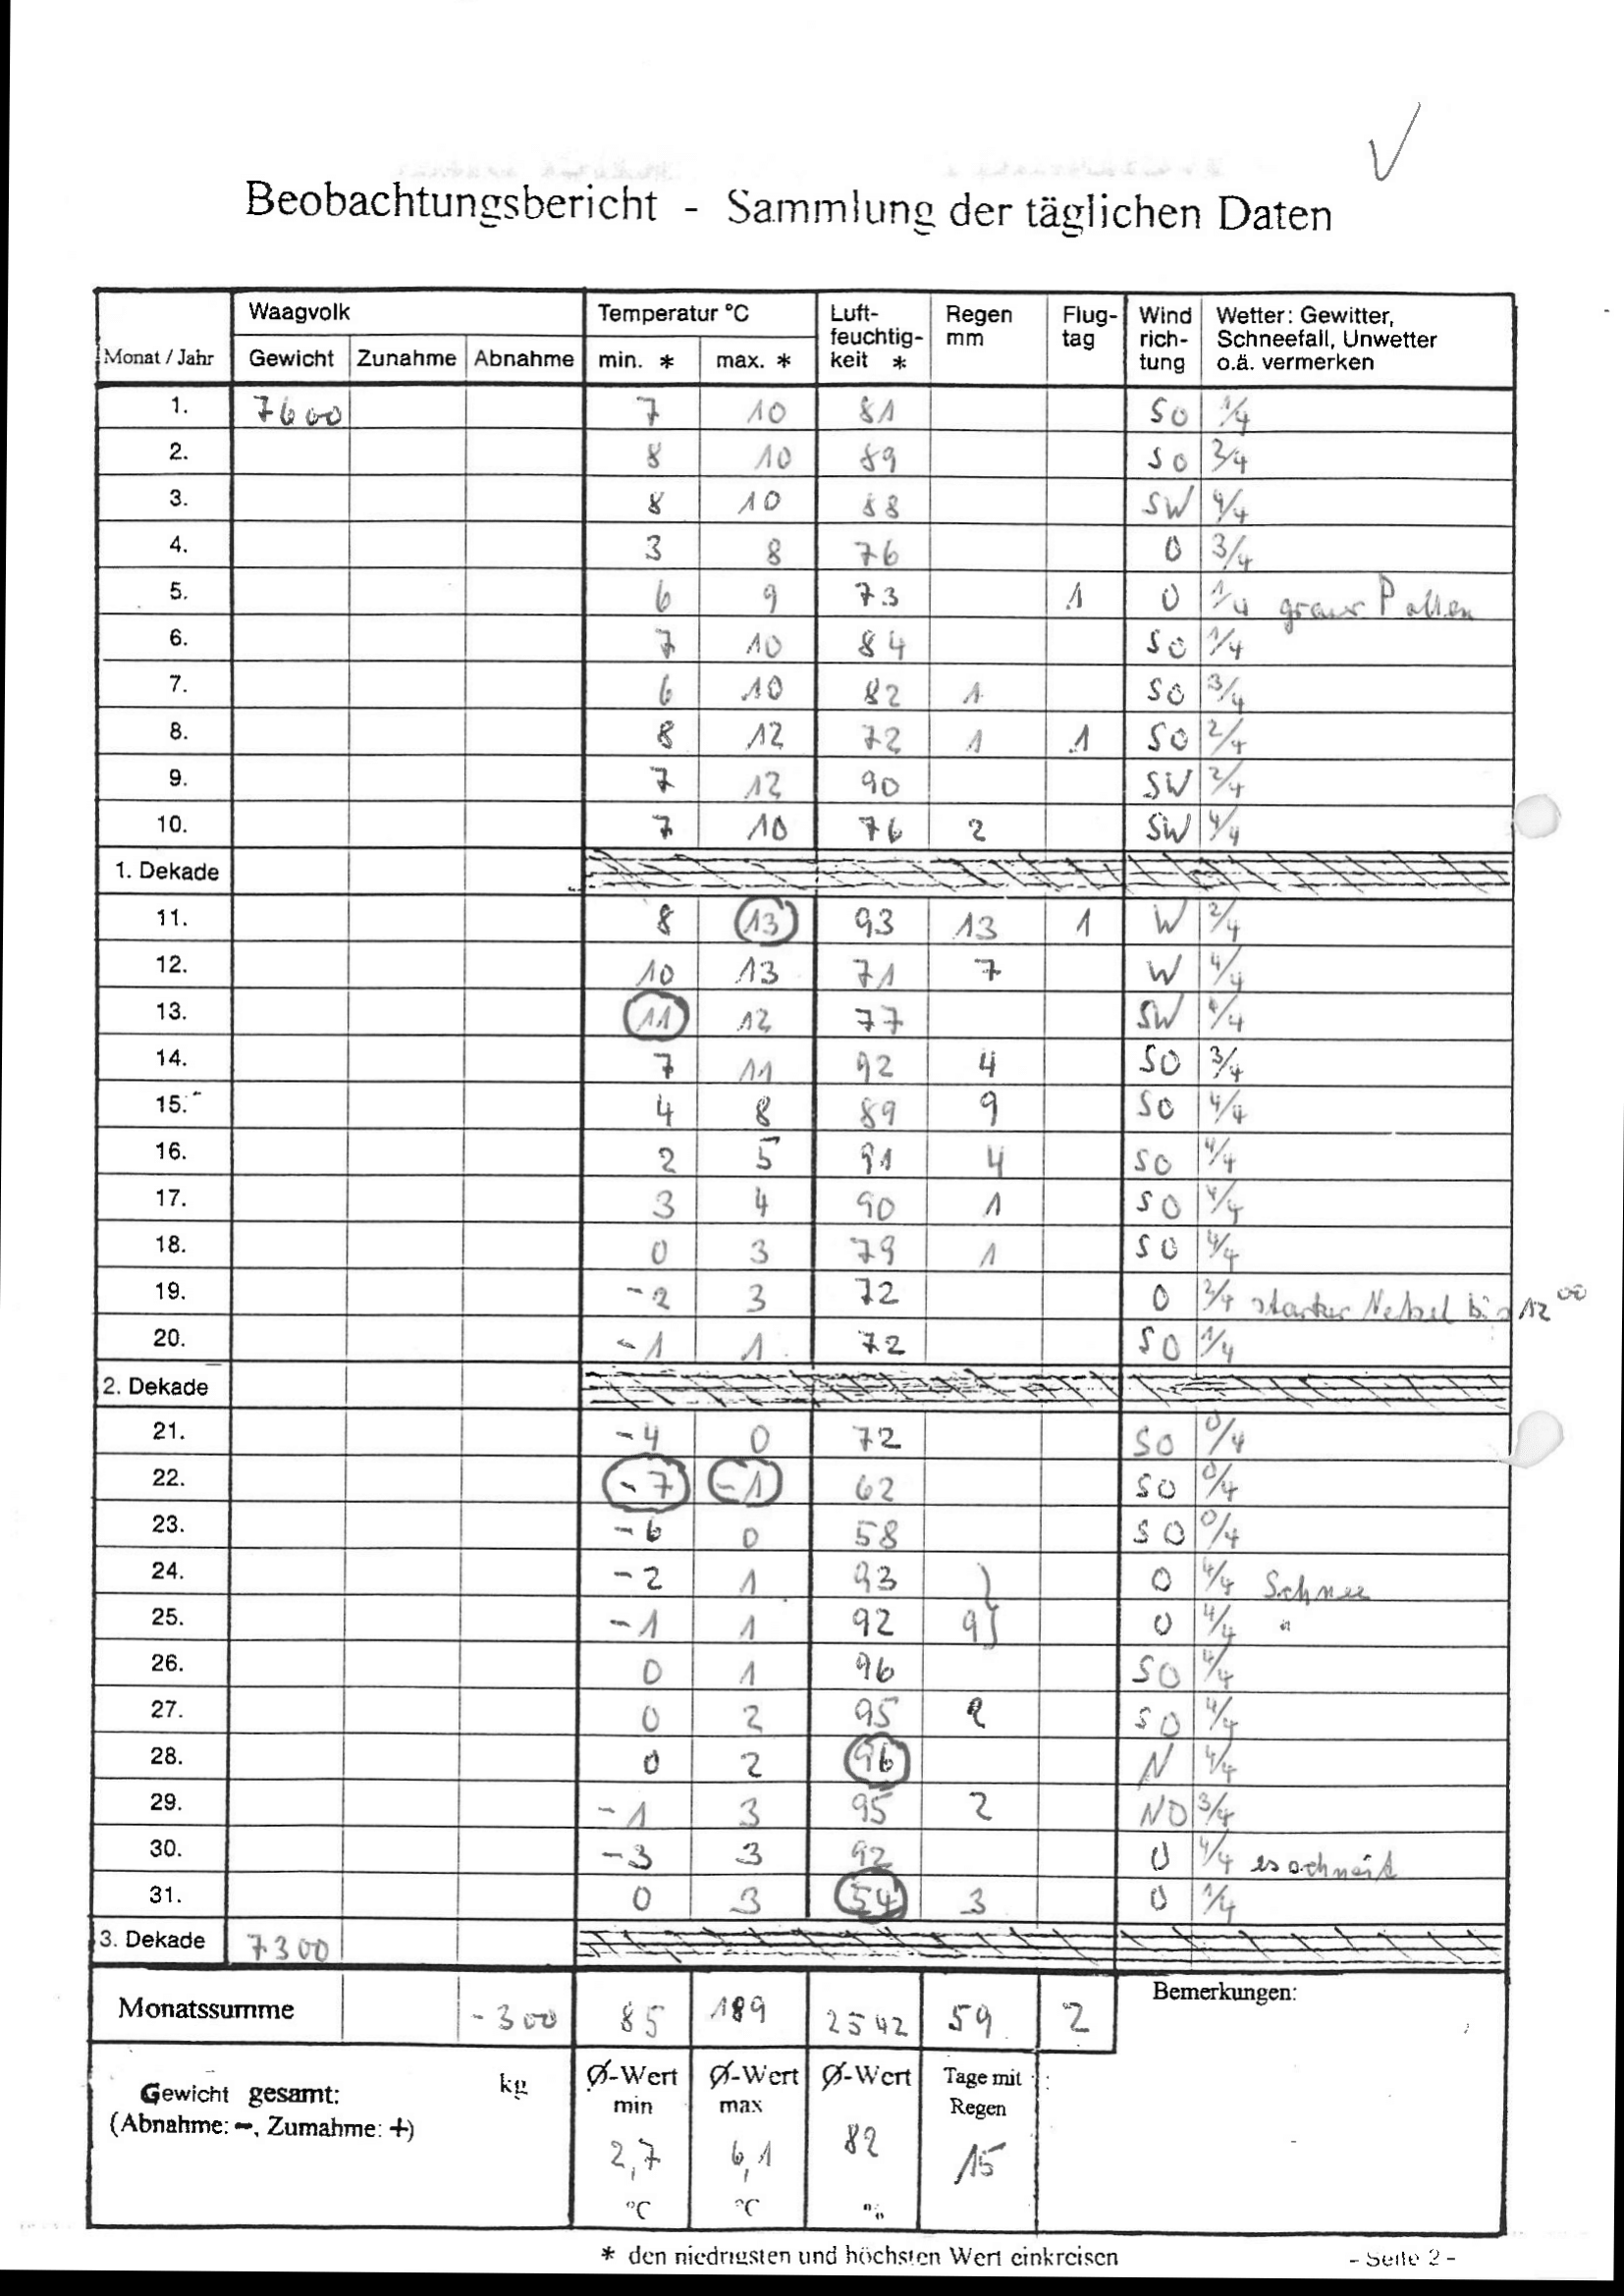 Beobachtungsbericht - Sammlung der täglichen Daten
Monat / Jahr Waagvolk Temperatur °C Luft-feuchtig-keit * Regen mm Flug-tag Wind rich-tung Wetter: Gewitter, Schneefall, Unwetter o.ä. vermerken
Gewicht Zunahme Abnahme min. * max. *
1. 7600 7 10 81 SO 1/4
2. 8 10 89 SO 3/4
3. 8 10 88 SW 4/4
4. 3 8 76 O 3/4
5. 6 9 73 1 O 1/4 grauer Pollen
6. 7 10 84 SO 1/4
7. 6 10 82 1 SO 3/4
8. 8 12 72 1 1 SO 2/4
9. 7 12 90 SW 2/4
10. 7 10 76 2 SW 4/4
1. Dekade
11. 8 13 93 13 1 W 2/4
12. 10 13 71 7 W 4/4
13. 11 12 77 SW 4/4
14. 7 11 92 4 SO 3/4
15. 4 8 89 9 SO 4/4
16. 2 5 91 4 SO 4/4
17. 3 4 90 1 SO 4/4
18. 0 3 79 1 SO 4/4
19. -2 3 72 O 2/4 starker Nebel bis 12 00
20. -1 1 72 SO 1/4
2. Dekade
21. -4 0 72 SO 0/4
22. -7 -1 62 SO 0/4
23. -6 0 58 SO 0/4
24. -2 1 93 } O 4/4 Schnee
25. -1 1 92 9 } O 4/4 "
26. 0 1 96 SO 4/4
27. 0 2 95 2 SO 4/4
28. 0 2 96 N 4/4
29. -1 3 95 2 NO 3/4
30. -3 3 92 O 4/4 es schneit
31. 0 3 54 3 O 1/4
3. Dekade 7300
Monatssumme -300 85 189 2542 59 2 Bemerkungen:
Gewicht gesamt: kg Ø-Wert min Ø-Wert max Ø-Wert Tage mit Regen
(Abnahme: -, Zumahme: +)
2,7 6,1 82 15
°C °C %
* den niedrigsten und höchsten Wert einkreisen
- Seite 2 -